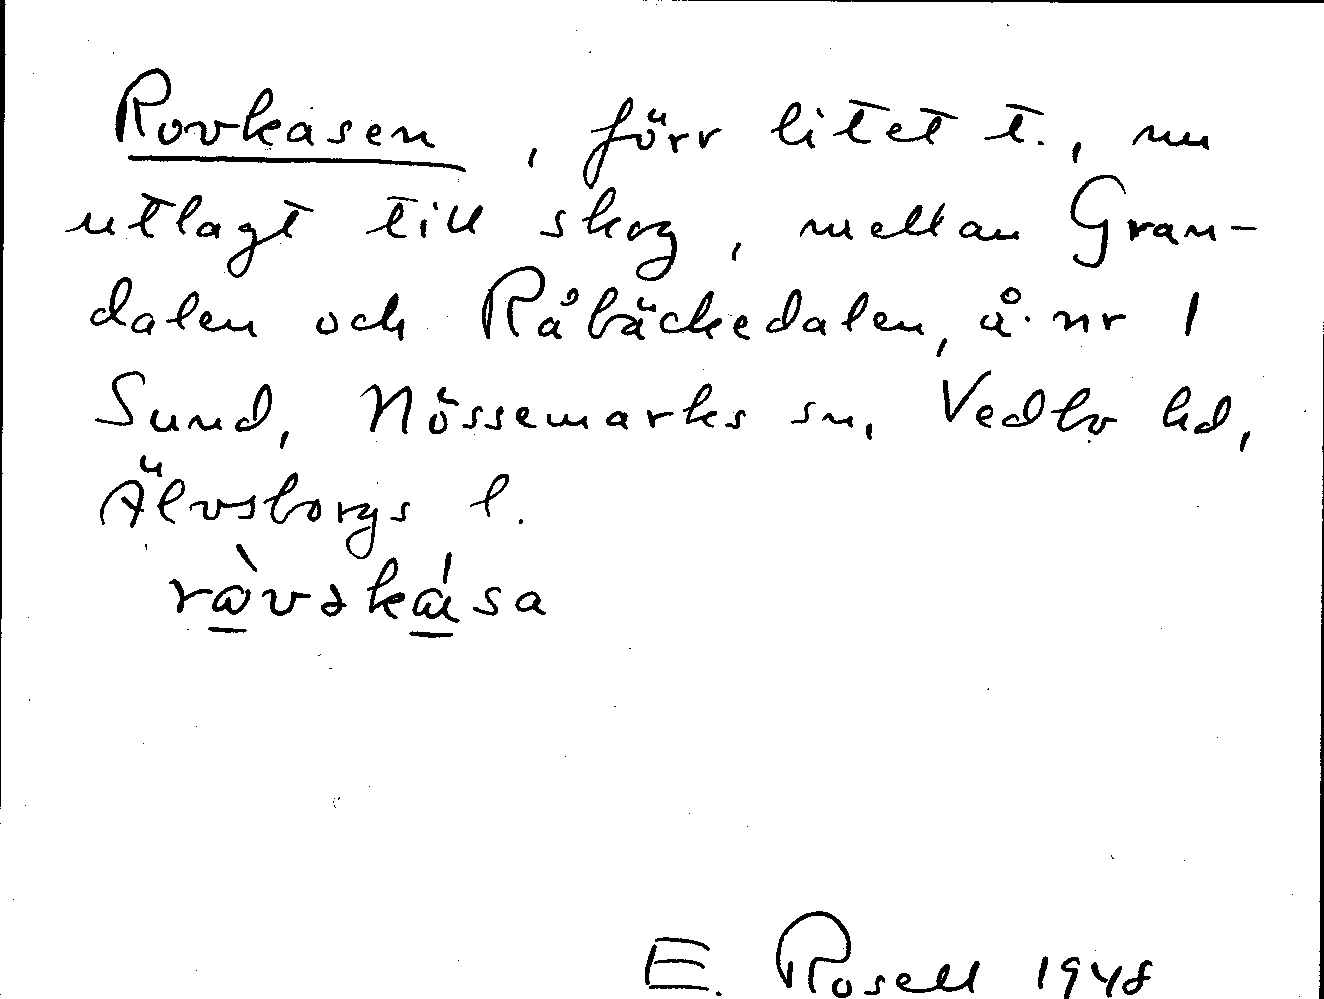 Rovkasen, förr litet t., nu
utlagt till skog, mellan Gran-
dalen och Råbäckedalen, å. nr 1
Sund, Nössemarks sn, Vedbo hd,
Älvsborgs l.
E. Rosell 1948